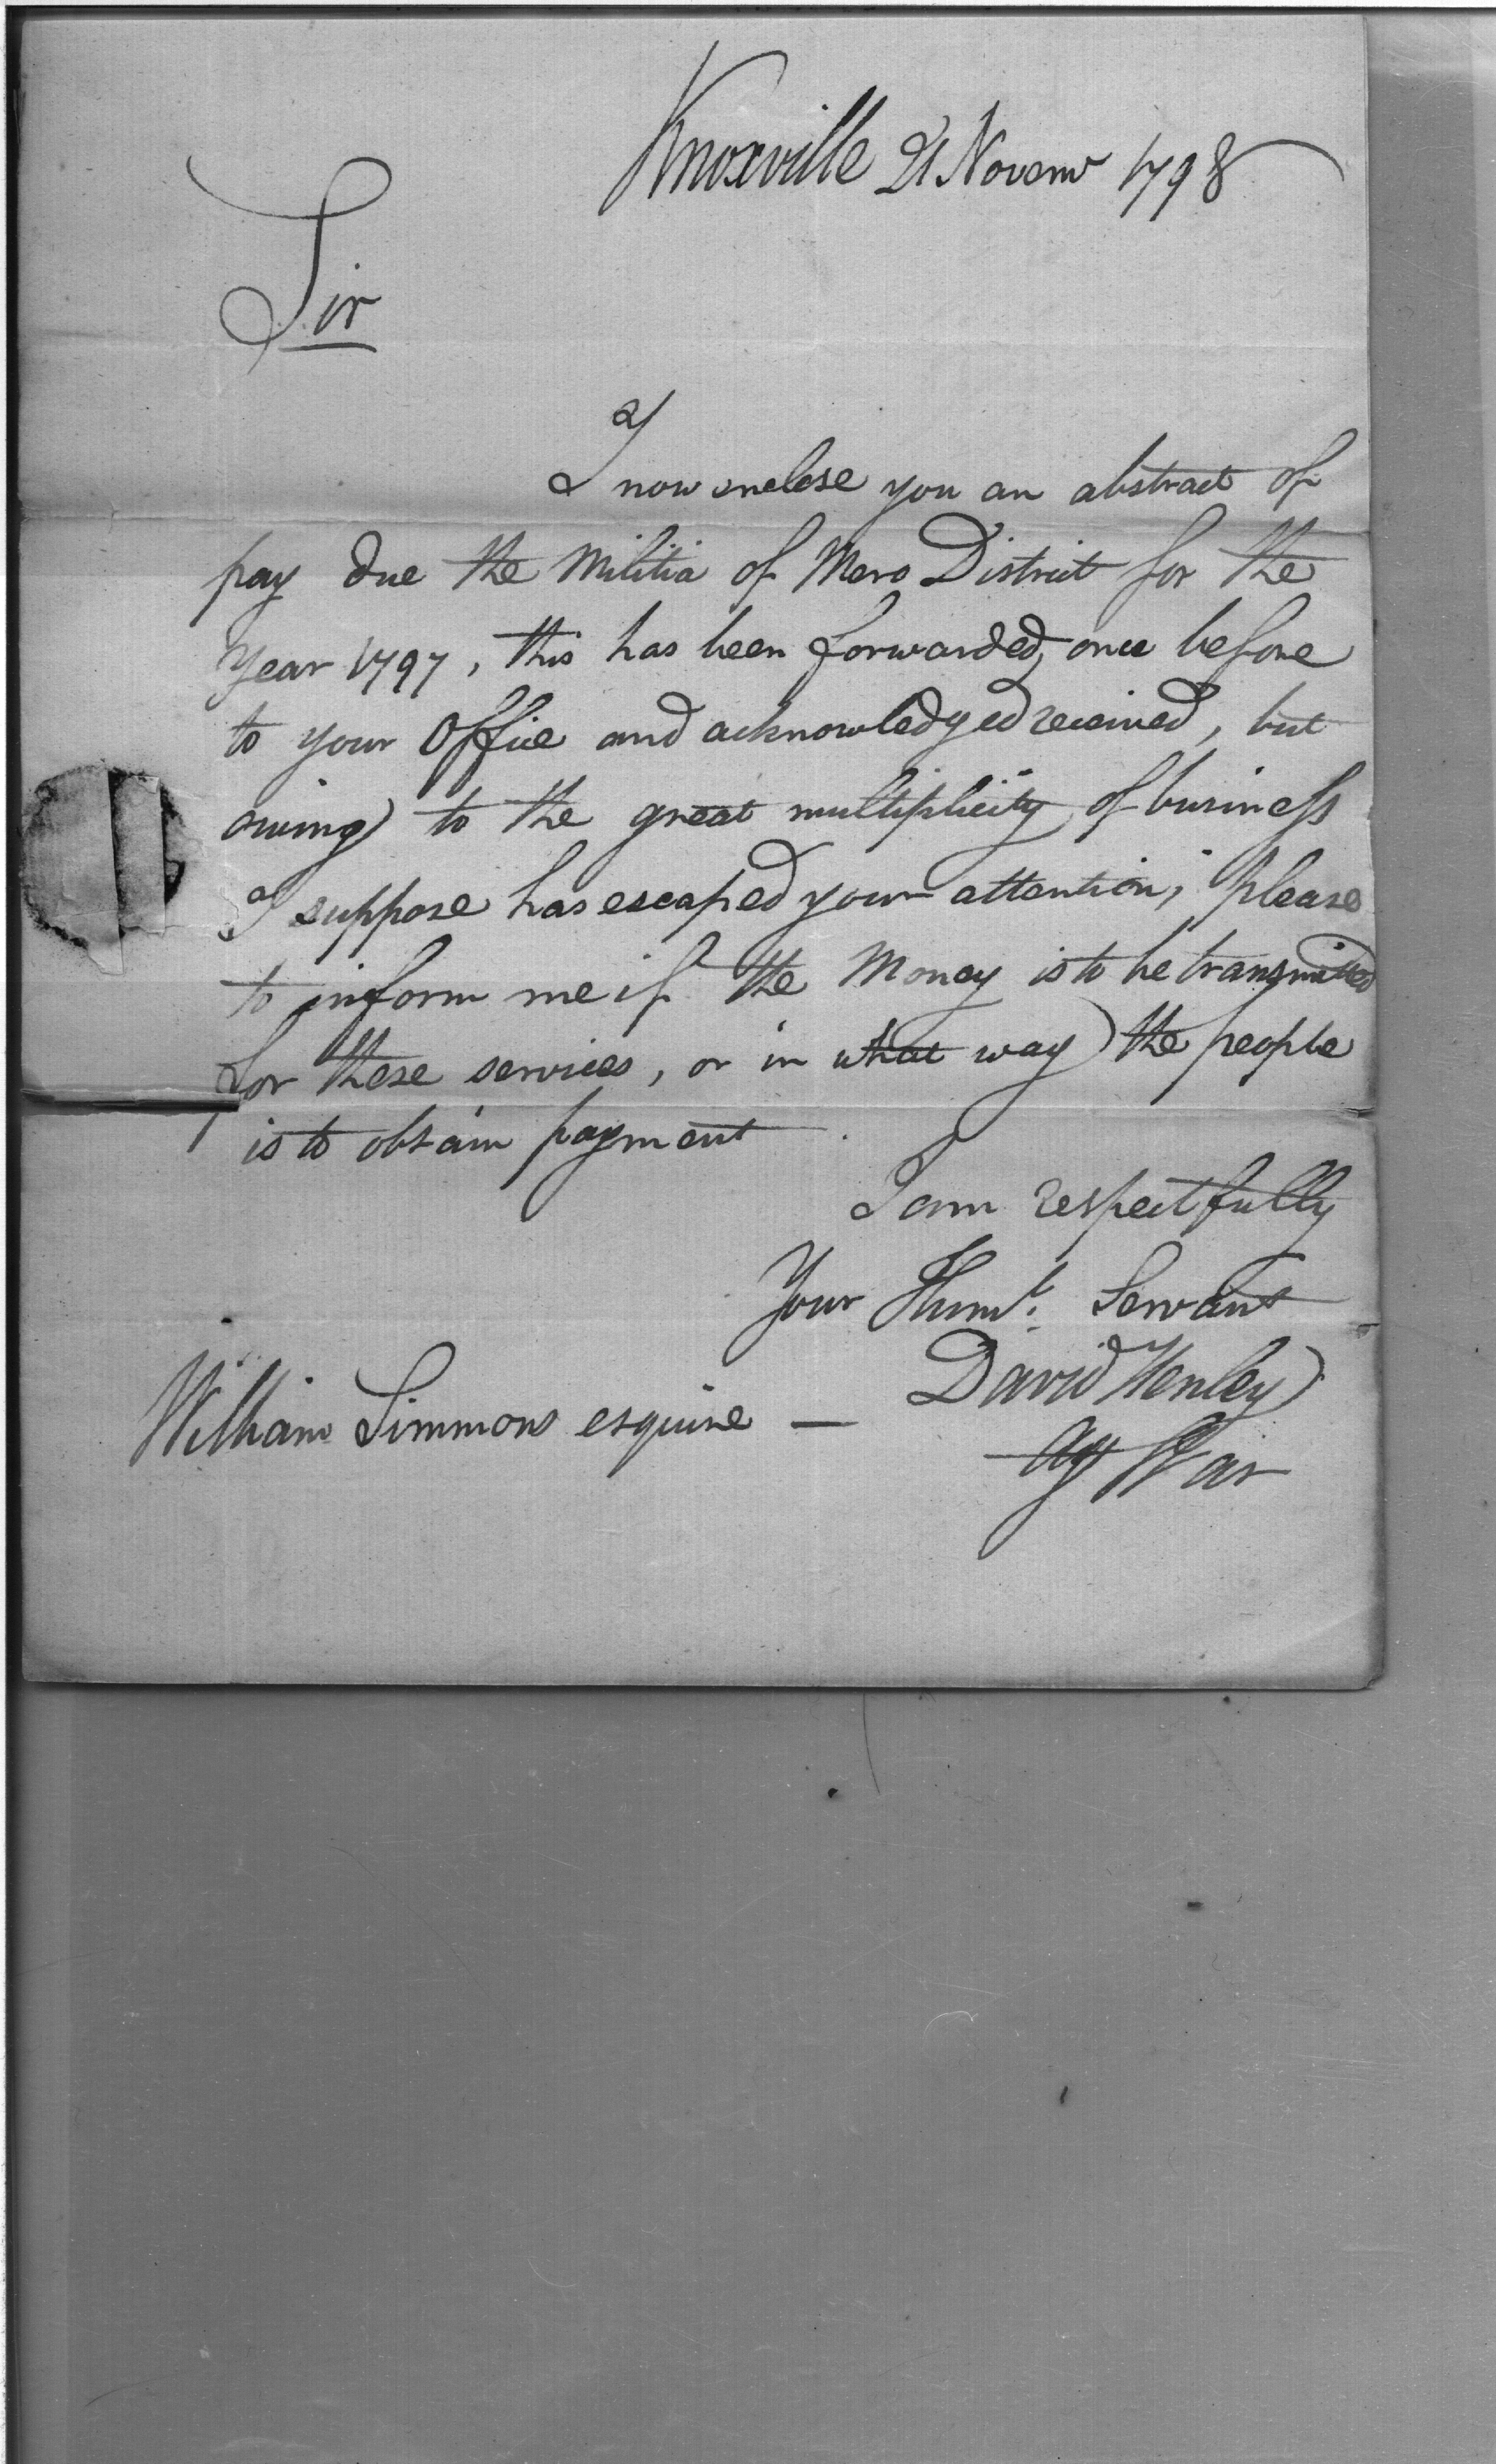 Knoxville 21 Novemr 1798
Sir
I now inclose you an abstract of
pay due the Militia of Mero District for the
Year 1797, this has been forwarded, once before
to your Office and acknowledged received, but
owing to the great multiplicity of business
I suppose has escaped your attention; please
to inform me if the Money is to be transmitted
for these services, or in what way the people
is to obtain payment.
I am respectfully
Your Humbl. Servant
David Henley
William Simmons esquire —
Agt War